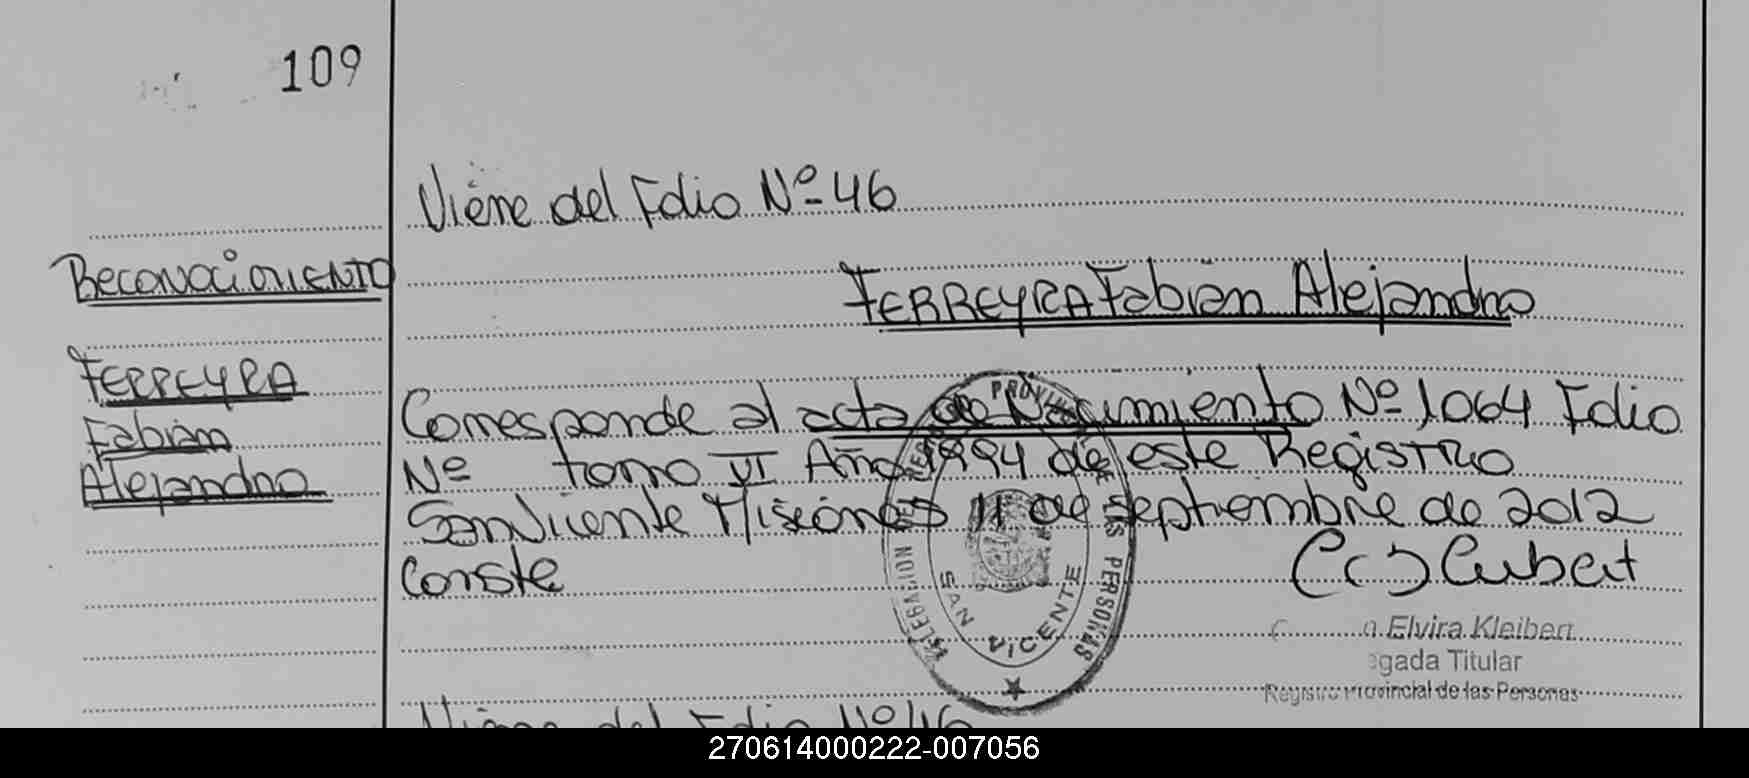 109
Viene del Folio Nº 46
Reconocimiento
FERREYRA Fabian Alejandro
FERREYRA
Fabian
Alejandro
Corresponde al acta de Nacimiento Nº 1064 Folio
Nº tomo VI Año 1994 de este Registro
San Vicente Misiones 11 de septiembre de 2012
Conste
PERSONAS
SAN VICENTE
Elvira Kleibert
Titular
Registro Provincial de las Personas
Viene del Folio Nº 46
270614000222-007056